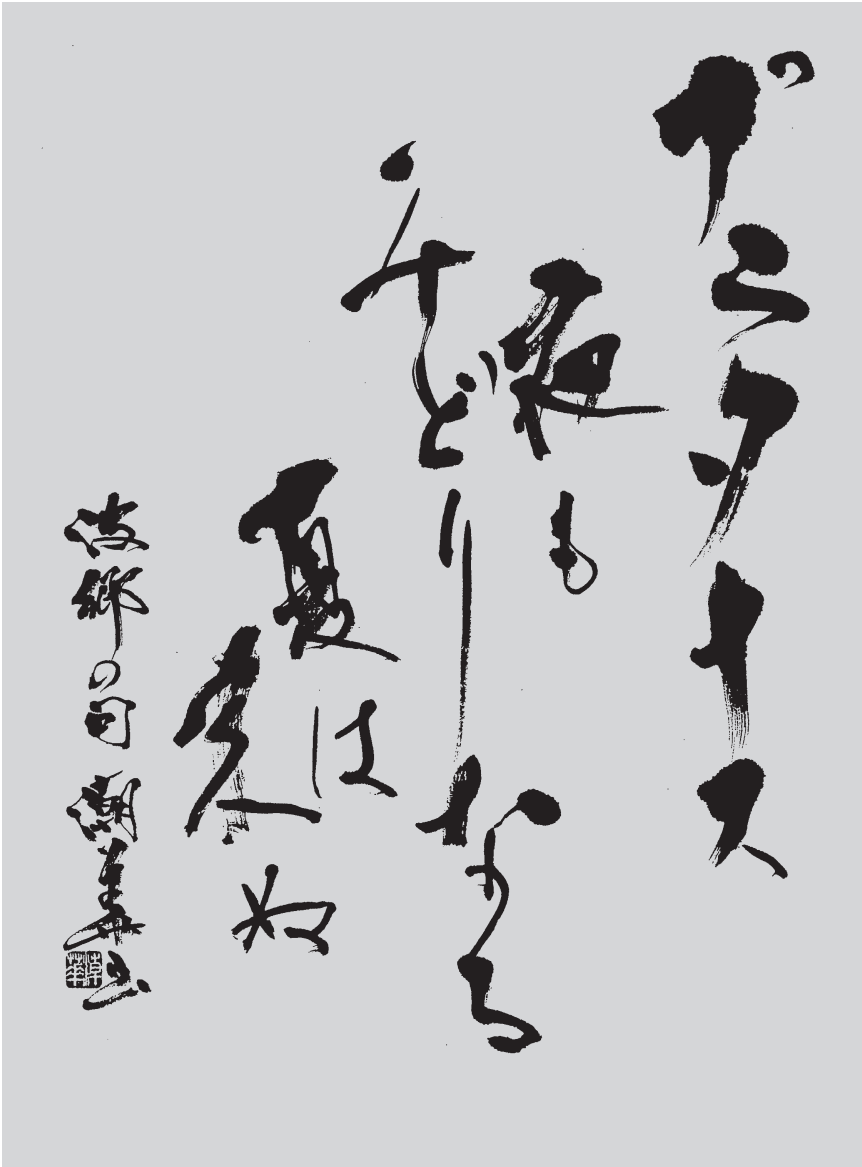 プラタナス
夜も
みどりなる
夏は
来ぬ
波郷の句 潮華書